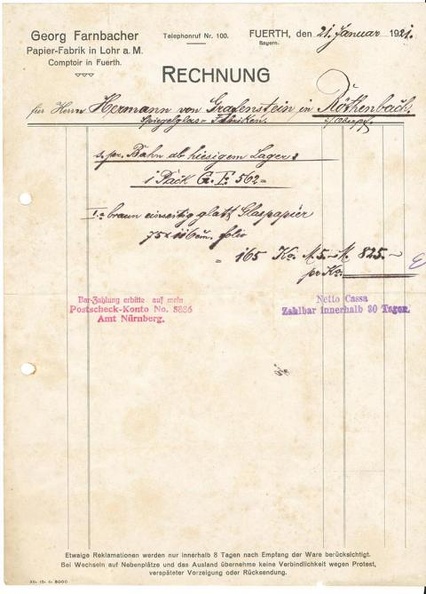 Georg Farnbacher
Papier-Fabrik in Lohr a. M.
Comptoir in Fuerth.
Telephonruf Nr. 100.
FUERTH, den 21. Januar 1921.
Bayern.
RECHNUNG
für Herrn Hermann von Grafenstein in Röthenbach
Spiegelglas-Fabriken.
p. Bahn ab hiesigem Lager:
1 Pack G. F. 562
Ia braun einseitig glatt Glaspapier
75x116 cm.
165 Ko. M 5.- M. 825.-
per Ko.
Bar-Zahlung erbitte auf mein
Postscheck-Konto No. 5836
Amt Nürnberg.
Netto Cassa
Zahlbar innerhalb 30 Tagen.
Etwaige Reklamationen werden nur innerhalb 8 Tagen nach Empfang der Ware berücksichtigt.
Bei Wechseln auf Nebenplätze und das Ausland übernehme keine Verbindlichkeit wegen Protest,
verspäteter Vorzeigung oder Rücksendung.